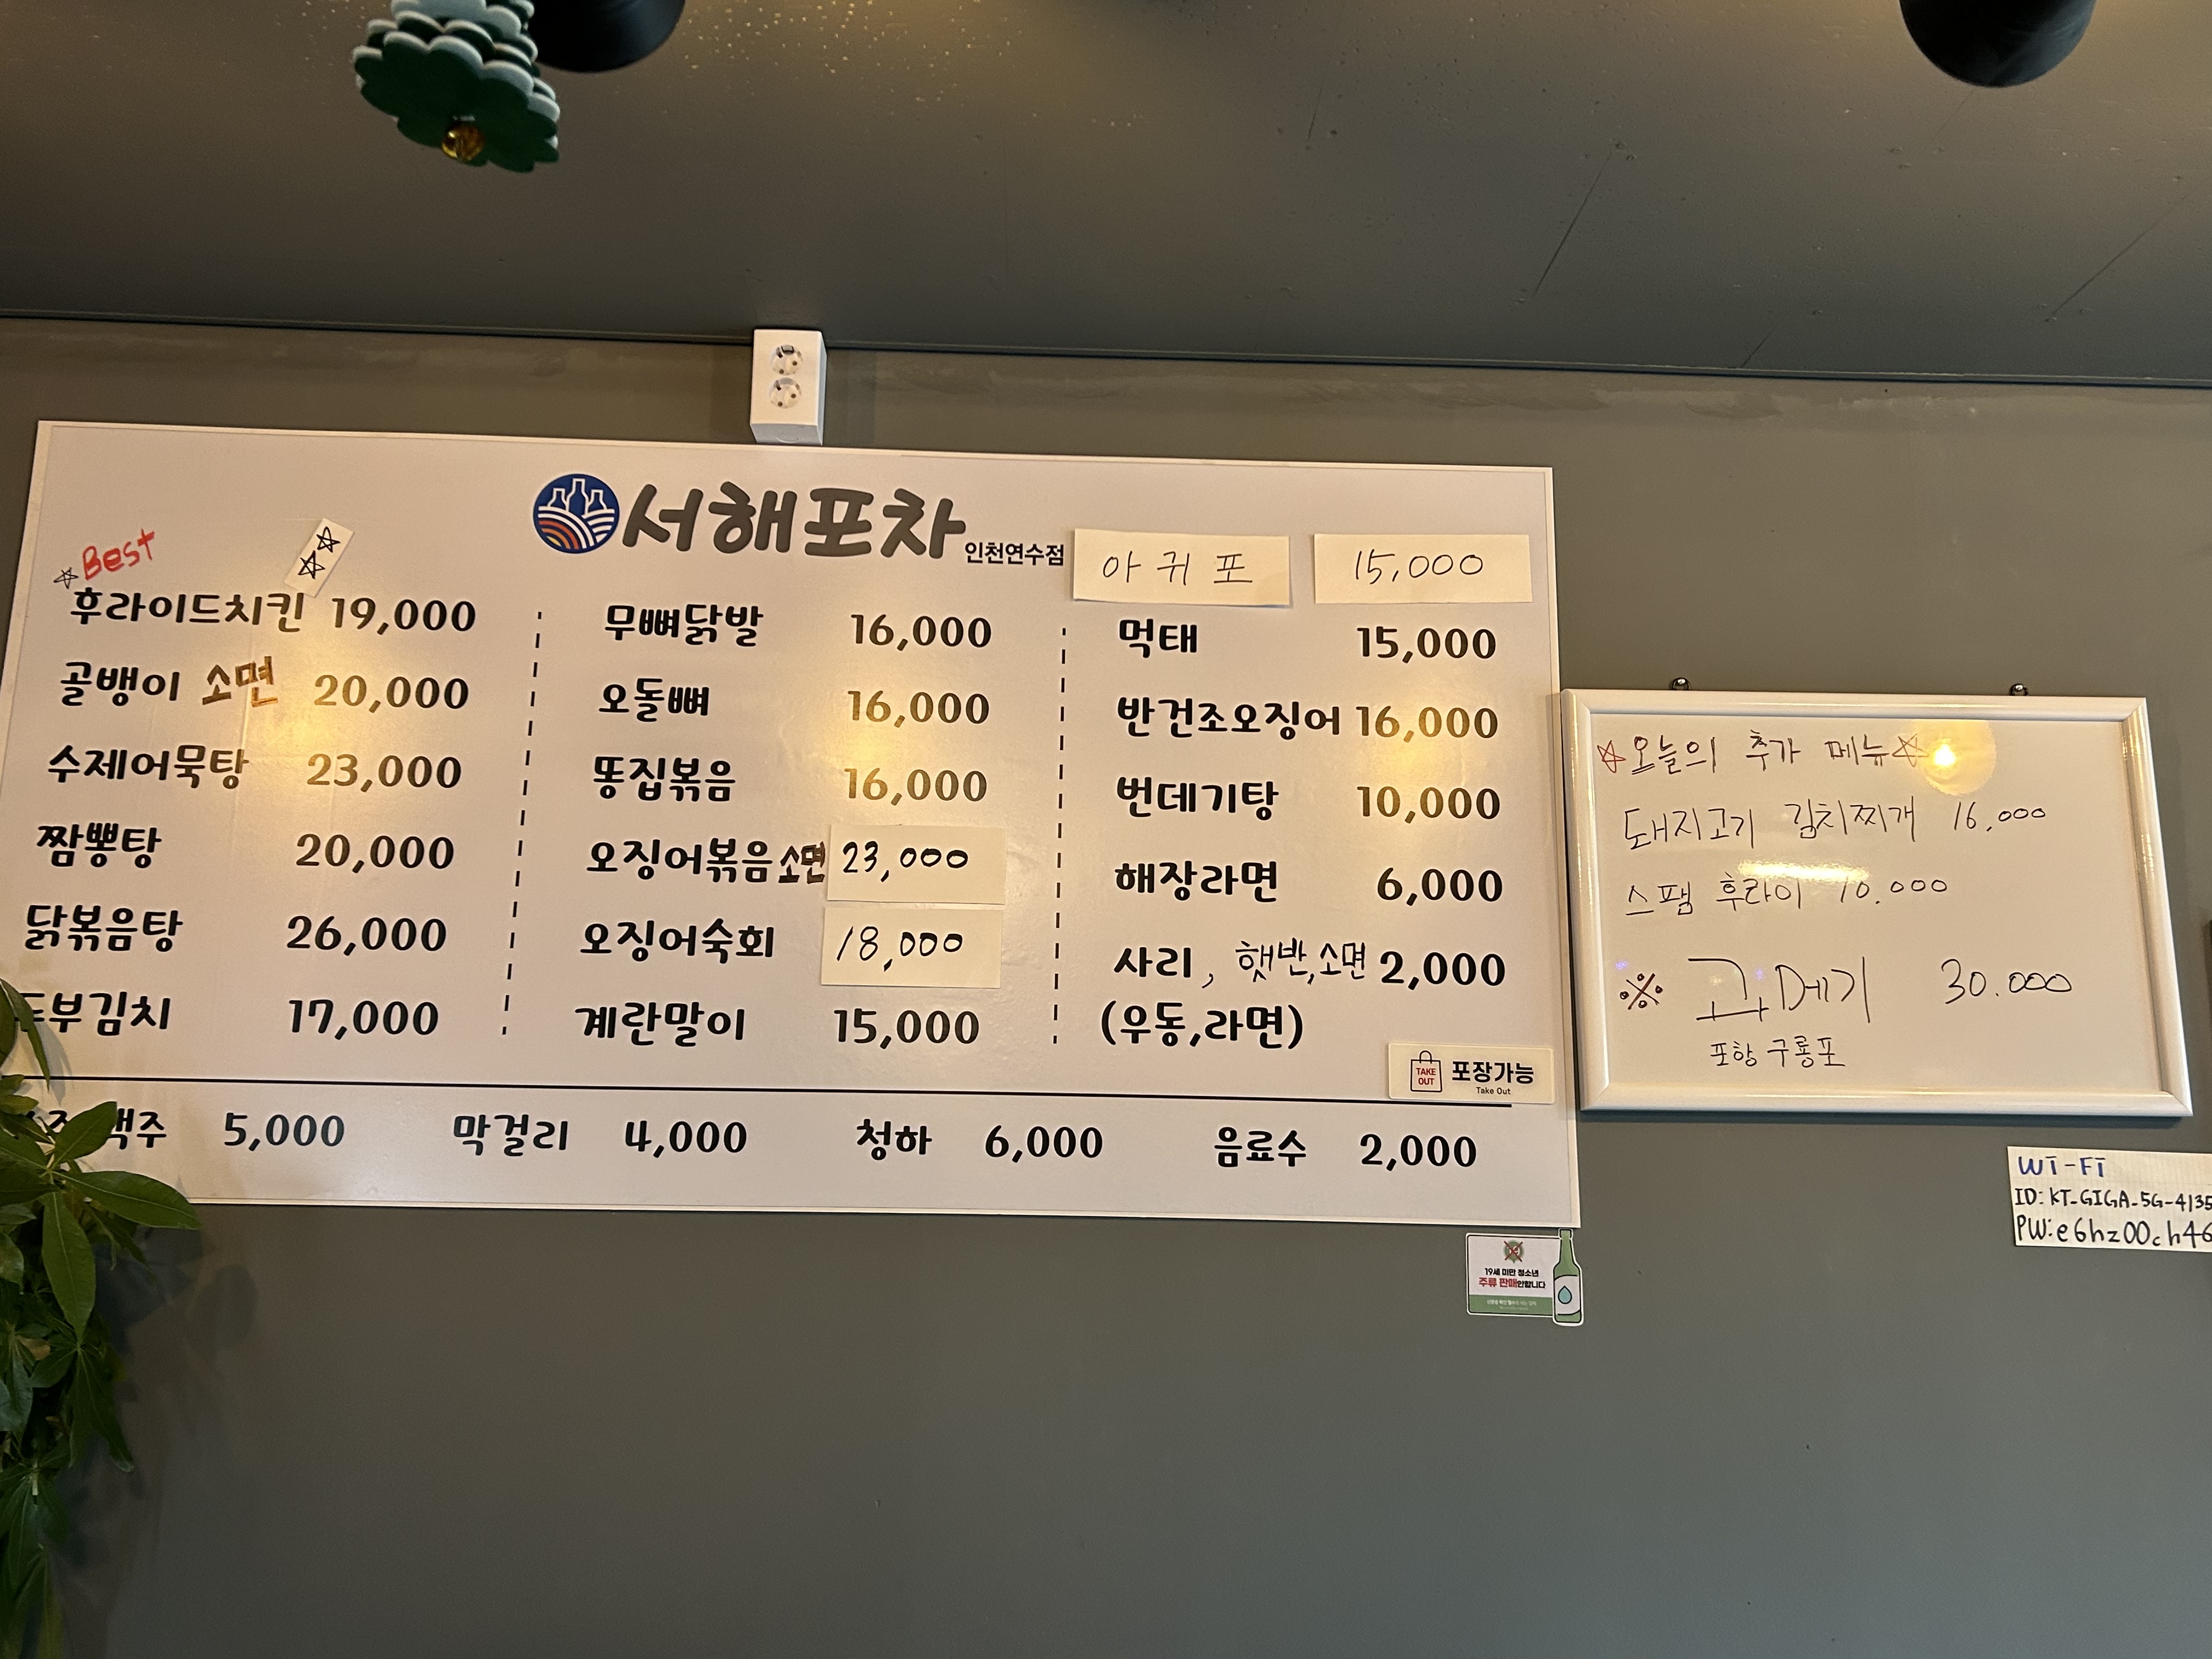 서해포차
인천연수점
아귀포 15,000
Best
후라이드치킨 19,000
골뱅이 소면 20,000
수제어묵탕 23,000
짬뽕탕 20,000
닭볶음탕 26,000
두부김치 17,000
무뼈닭발 16,000
오돌뼈 16,000
똥집볶음 16,000
오징어볶음소면 23,000
오징어숙회 18,000
계란말이 15,000
먹태 15,000
반건조오징어 16,000
번데기탕 10,000
해장라면 6,000
사리, 햇반,소면 2,000
(우동,라면)
TAKE OUT
포장가능
Take Out
맥주 5,000 막걸리 4,000 청하 6,000 음료수 2,000
☆오늘의 추가 메뉴☆
돼지고기 김치찌개 16,000
스팸 후라이 10.000
※ 과메기 30.000
포항 구룡포
Wi-Fi
ID: KT-GIGA-5G-4135
PW: e6hz00ch46
19세 미만 청소년
주류 판매안합니다